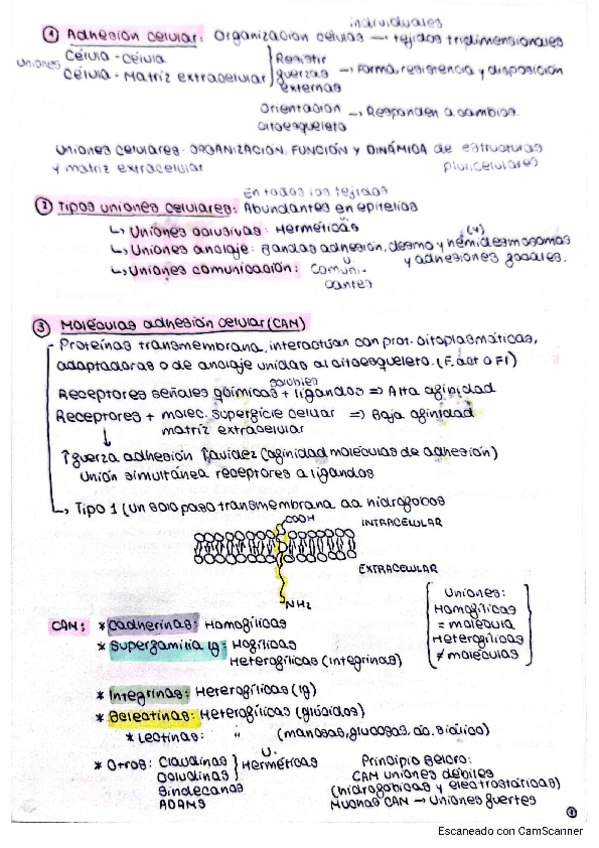 individuales
① Adhesión celular: Organización células → tejidos tridimensionales
uniones Célula - Célula Resistir
Célula - Matriz extracelular fuerzas → Forma, resistencia y disposición
externas
Orientación → Responden a cambios.
citoesqueleto
Uniones celulares: ORGANIZACIÓN, FUNCIÓN Y DINÁMICA de estructuras
y matriz extracelular pluricelulares
En todos los tejidos
② Tipos uniones celulares: Abundantes en epitelios
↳ Uniones oclusivas: Herméticas
(4)
↳ Uniones anclaje: Bandas adhesión, desmo y hemidesmosomas
y adhesiones focales.
↳ Uniones comunicación: U. Comuni-
cantes
③ Moléculas adhesión celular (CAM)
Proteínas transmembrana, interactúan con prot. citoplasmáticas,
adaptadoras o de anclaje unidas al citoesqueleto. (F. act o FI)
solubles
Receptores señales químicas + ligandos ⇒ Alta afinidad
Receptores + molec. superficie celular ⇒ Baja afinidad
matriz extracelular
↑fuerza adhesión ↑avidez (afinidad moléculas de adhesión)
Unión simultánea receptores a ligandos
↳ Tipo 1 (un solo paso transmembrana aa hidrofobos
COOH INTRACELULAR
EXTRACELULAR
NH2
Uniones:
Homofílicas
= molécula
Heterofílicas
≠ moléculas
CAM: * Cadherinas: Homofílicas
* Superfamilia Ig: Hofílicas
Heterofílicas (integrinas)
* Integrinas: Heterofílicas (Ig)
* Selectinas: Heterofílicas (glúcidos)
* Lectinas: " (manosas, glucosas, ac. siálico)
* Otros: Claudinas U.
Ocludinas Herméticas
Sindecanos
ADAMS
Principio Belcro:
CAM uniones débiles
(hidrofóbicas y electrostáticas)
Muchas CAM → Uniones fuertes
①
Escaneado con CamScanner